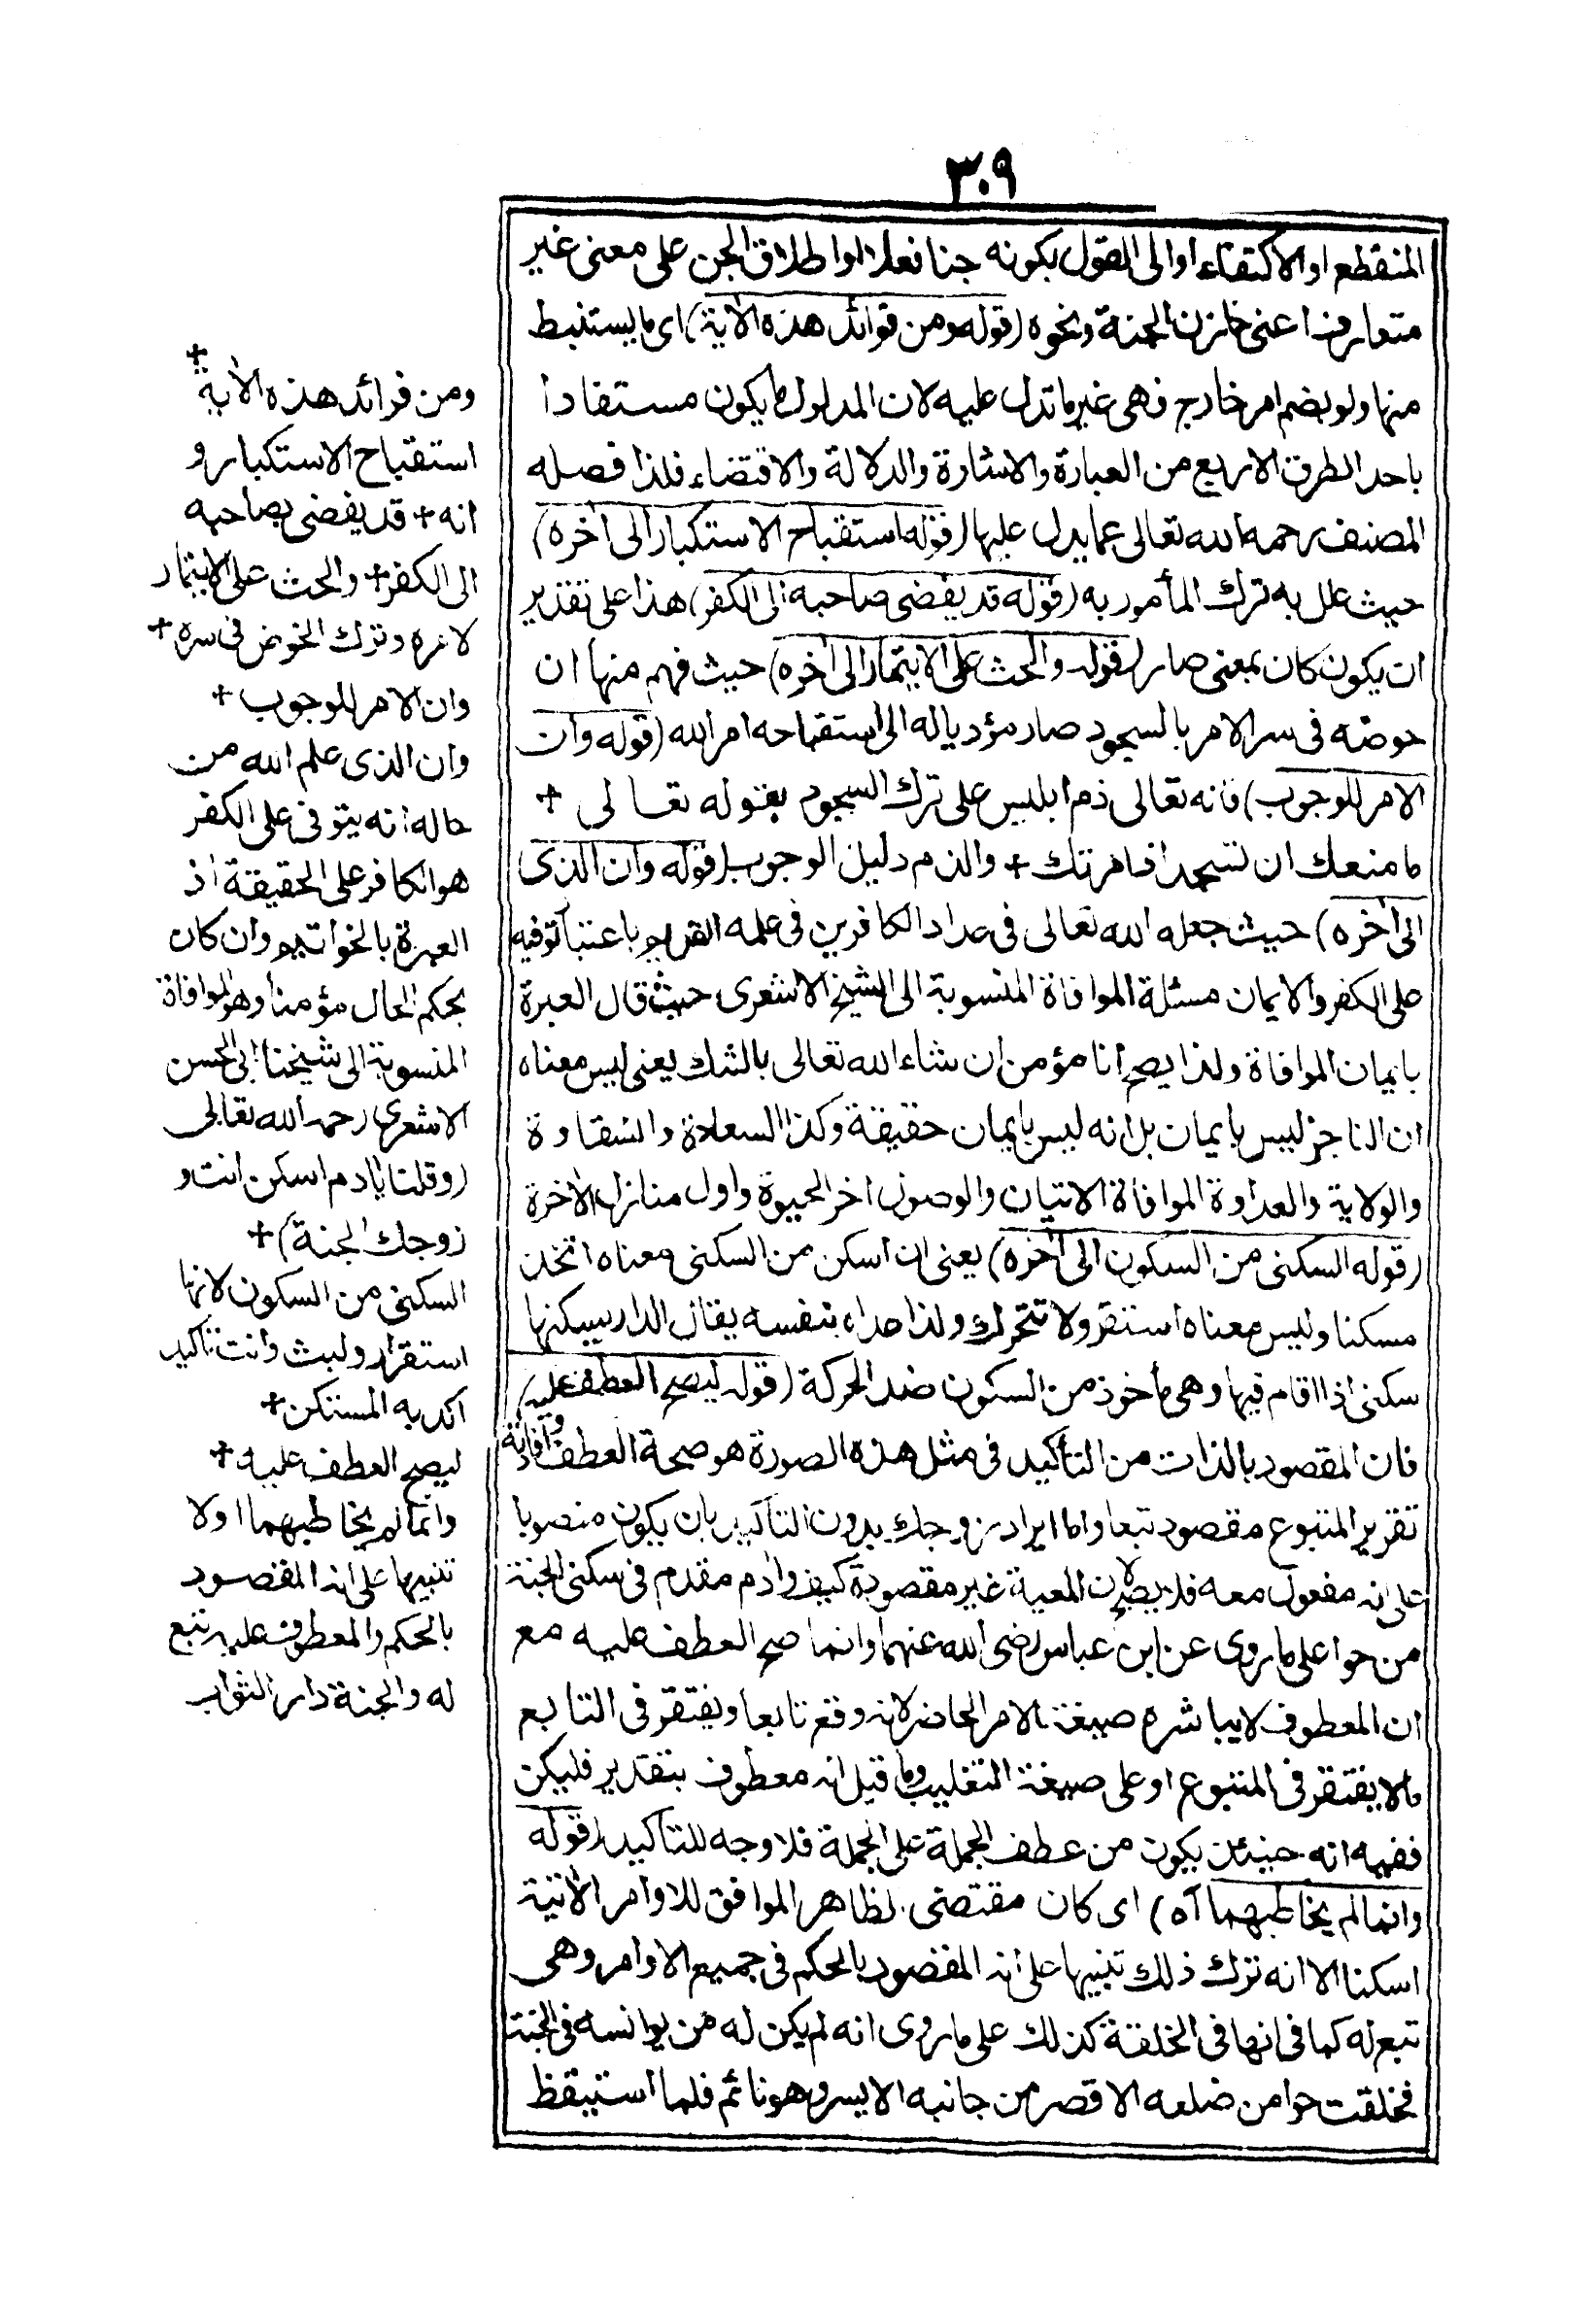 ٣٠٩
المنقطع او الاكتفاء او الى القول بكونه جنا فعلا او اطلاق الجن على معنى غير
متعارف اعنى خازن الجنة ونحوه (قوله ومن فوائد هذه الآية) اى ما يستنبط
منها ولو بضم امر خارج فهى غير ما تدل عليه لان المدلول ما يكون مستفادا
باحد الطرق الاربع من العبارة والاشارة والدلالة والاقتضاء فلذا فصله
المصنف رحمه الله تعالى عما يدل عليها (قوله استقباح الاستكبار الى آخره)
حيث علل به ترك المأمور به (قوله قد يفضى صاحبه الى الكفر) هذا على تقدير
ان يكون كان بمعنى صار (قوله والحث على الايتمار الى آخره) حيث فهم منها ان
خوضه فى سر الامر بالسجود صار مؤديا له الى استقباحه امر الله (قوله وان
الامر للوجوب) فانه تعالى ذم ابليس على ترك السجود بقوله تعالى +
ما منعك ان تسجد اذ امرتك + والذم دليل الوجوب (قوله وان الذى
الى آخره) حيث جعله الله تعالى فى عداد الكافرين فى علمه القديم باعتبار توفيه
على الكفر والايمان مسئلة الموافاة المنسوبة الى الشيخ الاشعرى حيث قال العبرة
بايمان الموافاة ولذا يصح انا مؤمن ان شاء الله تعالى بالشك يعنى ليس معناه
ان الناجز ليس بايمان بل انه ليس بايمان حقيقة وكذا السعادة والشقاوة
والولاية والعداوة الموافاة الاتيان والوصول آخر الحيوة واول منازل الآخرة
(قوله السكنى من السكون الى آخره) يعنى ان اسكن من السكنى معناه اتخذ
مسكنا وليس معناه استقر ولا تتحرك ولذا عداه بنفسه يقال الدار يسكنها
سكنى اذا اقام فيها وهى مأخوذ من السكون ضد الحركة (قوله ليصح العطف عليه)
فان المقصود بالذات من التأكيد فى مثل هذه الصورة هو صحة العطف وافادته
تقرير المتبوع مقصود تبعا واما ايراد زوجك بدون التاكيد بان يكون منصوبا
على انه مفعول معه فلا يصح لان المعية غير مقصودة كيف وآدم مقدم فى سكنى الجنة
من حوا على ما روى عن ابن عباس رضى الله عنهما وانما صح العطف عليه مع
ان المعطوف لا يباشره صيغة الامر الحاضر لانه وقع تابعا ويفتقر فى التابع
ما لا يفتقر فى المتبوع او على صيغة التغليب وما قيل انه معطوف بتقدير فليكن
ففيه انه حينئذ يكون من عطف الجملة على الجملة فلا وجه للتاكيد (قوله
وانما لم يخاطبهما آه) اى كان مقتضى لظاهر الموافق للاوامر الآتية
اسكنا الا انه ترك ذلك تنبيها على انه المقصود بالحكم فى جميع الاوامر وهى
تبع له كما فى انها فى الخلقة كذلك على ما روى انه لم يكن له من يوانسه فى الجنة
فخلقت حوا من ضلعه الاقصر من جانبه الايسر وهو نائم فلما استيقظ
ومن فوائد هذه الآية +
استقباح الاستكبار و
انه + قد يفضى بصاحبه
الى الكفر + والحث على الايتمار
لامره وترك الخوض فى سره +
وان الامر للوجوب +
وان الذى علم الله من
حاله انه يتوفى على الكفر
هو الكافر على الحقيقة اذ
العبرة بالخواتيم وان كان
بحكم الحال مؤمنا وهو الموافاة
المنسوبة الى شيخنا ابى الحسن
الاشعرى رحمه الله تعالى
(وقلنا يا آدم اسكن انت و
زوجك الجنة) +
السكنى من السكون لانها
استقرار ولبث وانت تاكيد
اكد به المستكن +
ليصح العطف عليه +
وانما لم يخاطبهما اولا
تنبيها على انه المقصود
بالحكم والمعطوف عليه تبع
له والجنة دار الثواب